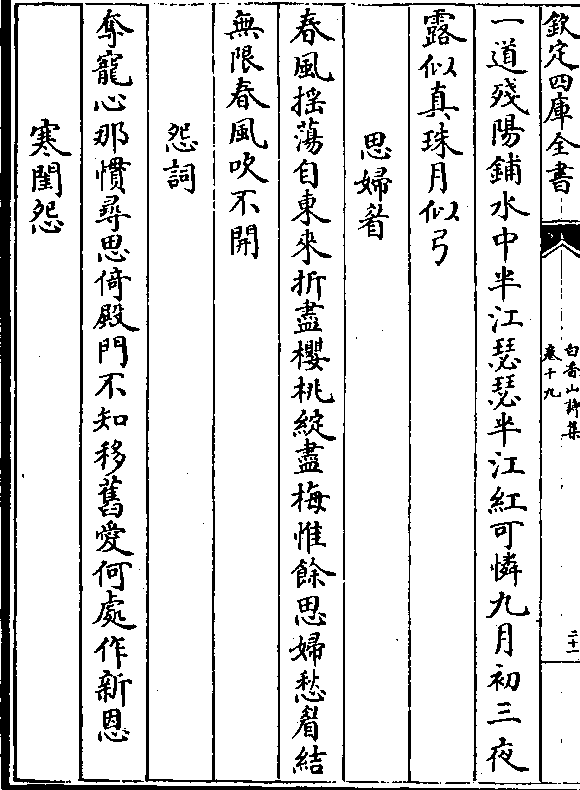 欽定四庫全書
白香山詩集
卷十九
二十一
一道殘陽鋪水中半江瑟瑟半江紅可憐九月初三夜
露似真珠月似弓
思婦眉
春風揺蕩自東來折盡櫻桃綻盡梅惟餘思婦愁眉結
無限春風吹不開
怨詞
奪寵心那慣尋思倚殿門不知移舊愛何處作新恩
寒閨怨